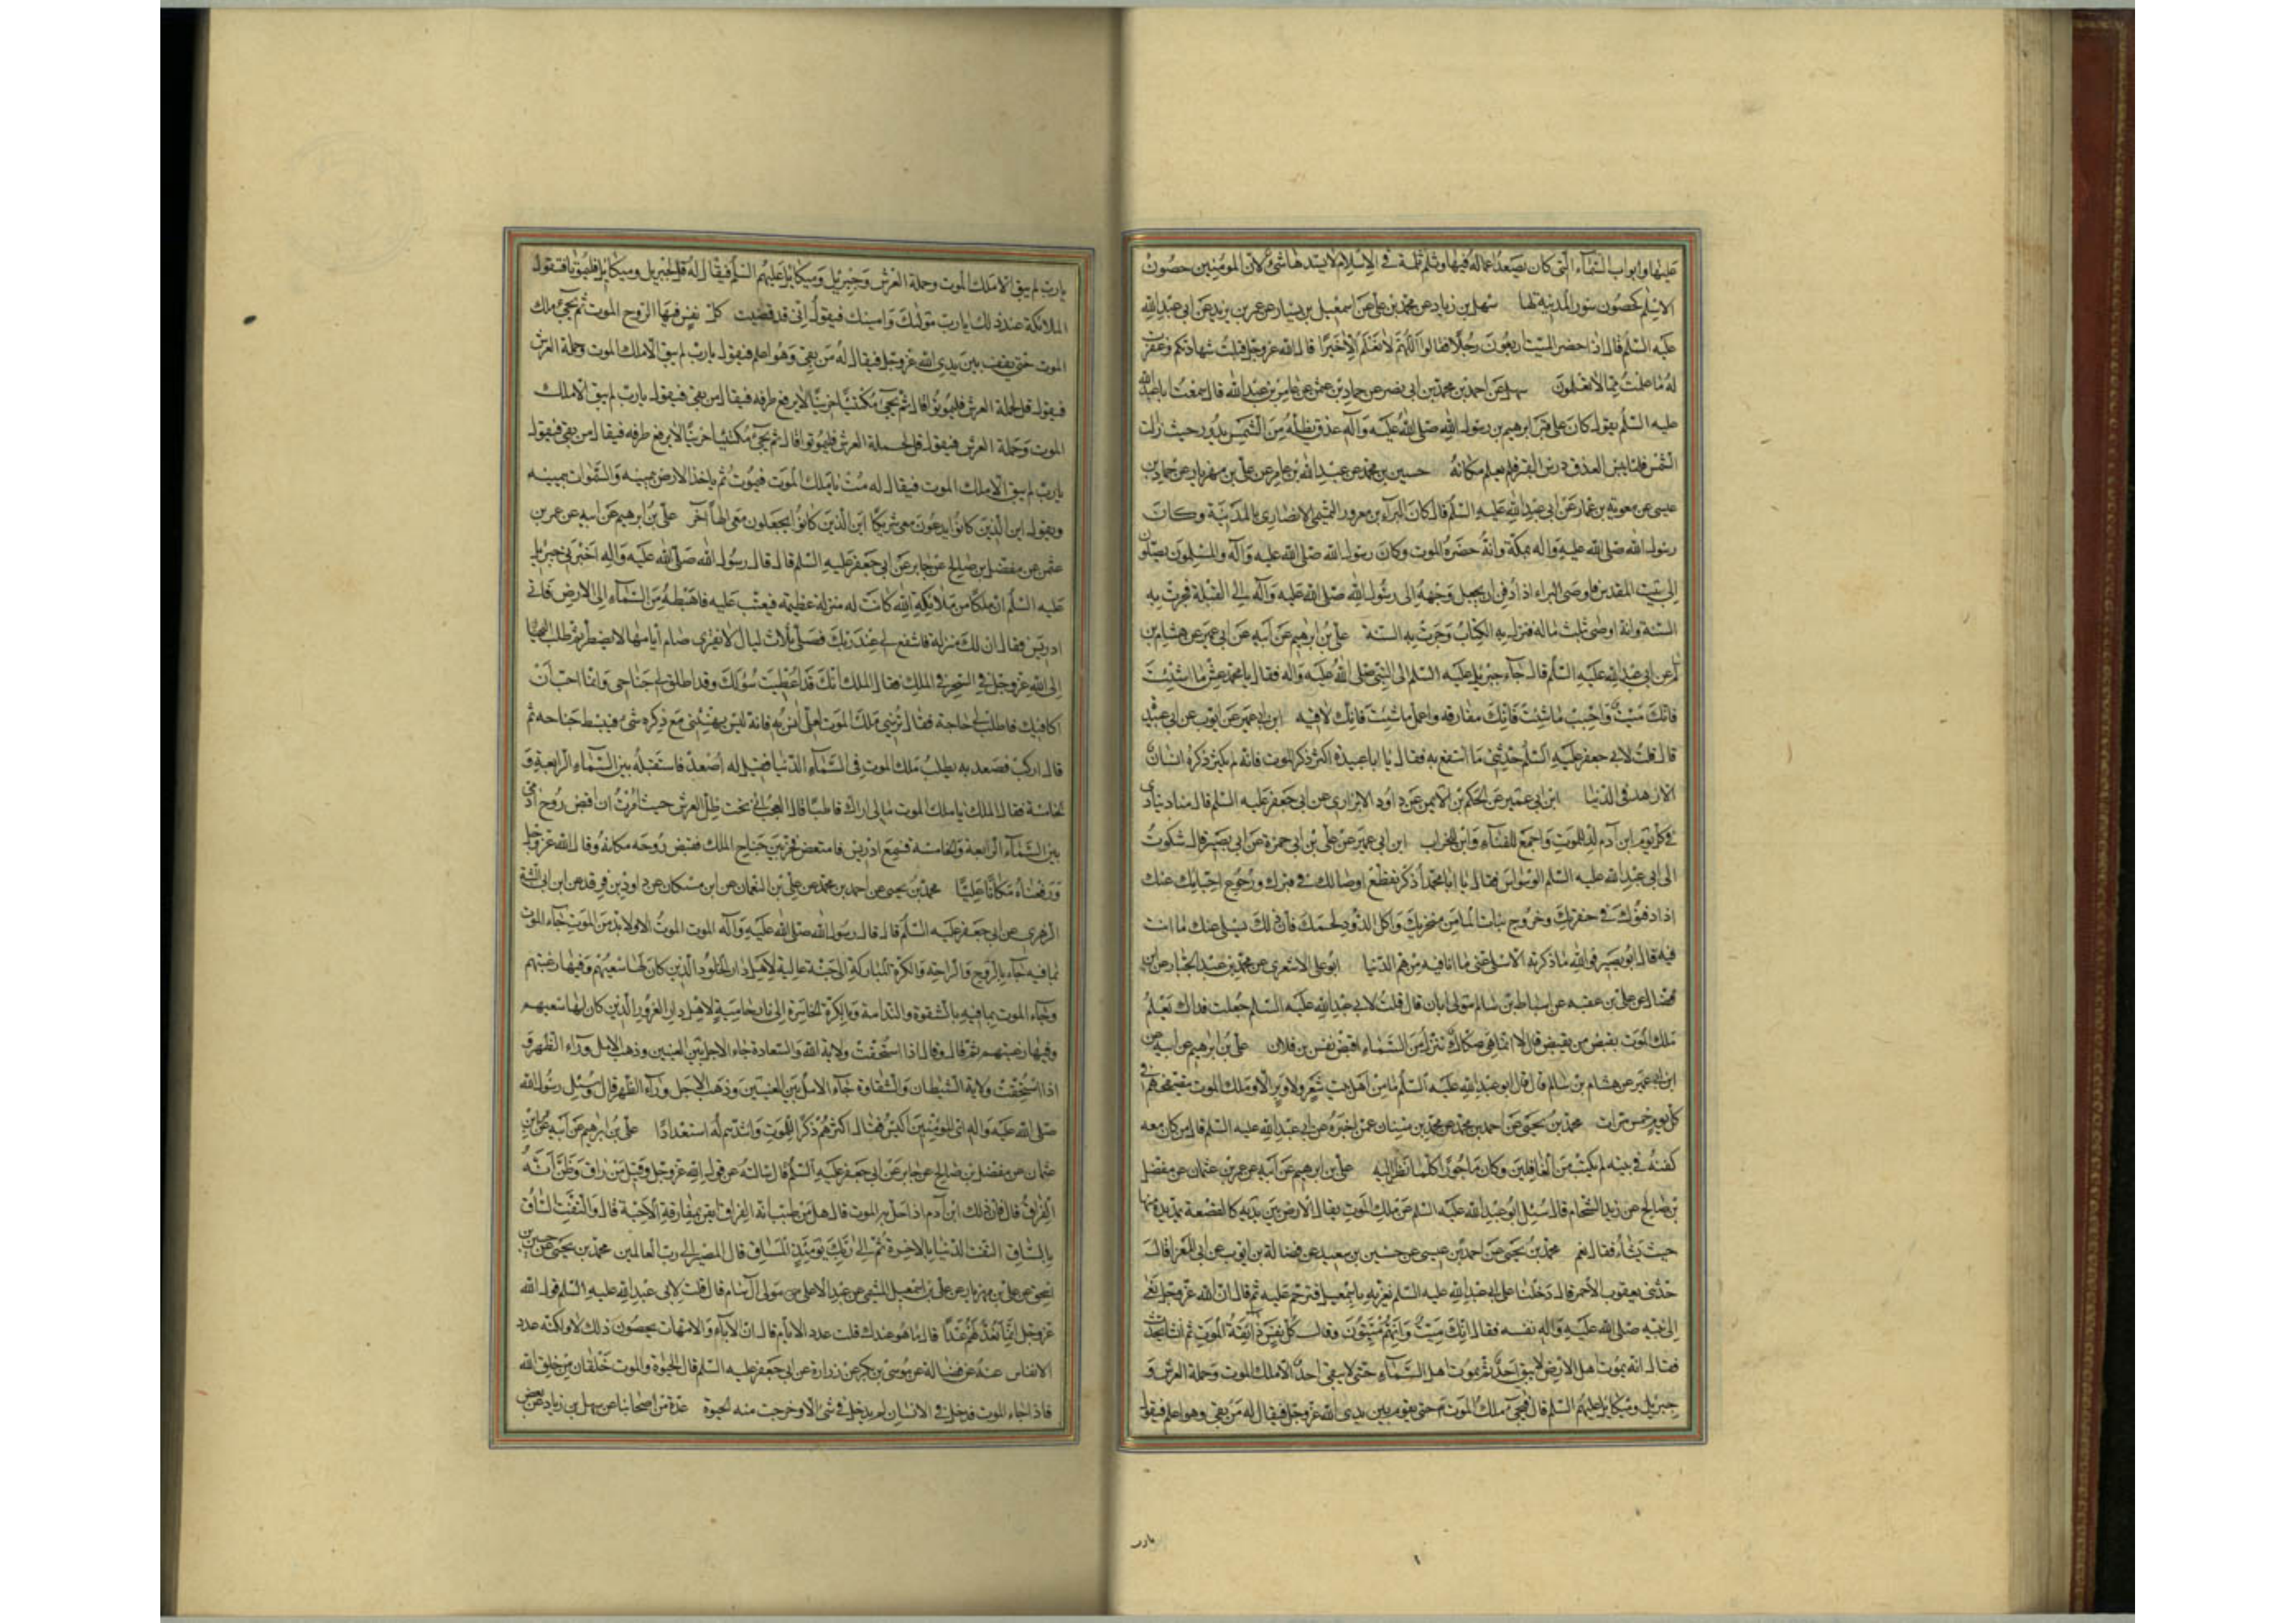 عليها وابواب السماء التى كان يصعد اعماله فيها وثلم ثلمة فى الاسلام لا يسدها شئ لان المؤمنين حصون
الاسلام كحصون سور المدينة لها سهل بن زياد عن محمد بن على عن اسمعيل بن يسار عن عمر بن يزيد عن ابى عبد الله
عليه السلم قال اذا حضر الميت اربعون رجلا فقالوا اللهم لا نعلم الا خيرا قال الله عز وجل قبلت شهادتكم وغفرت
له ما علمت مما لا تعلمون سهل عن احمد بن محمد بن ابى نصر عن حماد بن عثمن عن عامر بن عبد الله قال سمعت ابا عبد الله
عليه السلم يقول كان على قبر ابرهيم بن رسول الله صلى الله عليه وآله عذق يظله من الشمس يدور حيث دارت
الشمس فلما يبس العذق درس القبر فلم يعلم مكانه حسين بن محمد عن عبد الله بن عامر عن على بن مهزيار عن حماد بن
عيسى عن معوية بن عمار عن ابى عبد الله عليه السلم قال كان البراء بن معرور التميمى الانصارى بالمدينة وكان
رسول الله صلى الله عليه واله بمكة وانه حضره الموت وكان رسول الله صلى الله عليه وآله والمسلمون يصلون
الى بيت المقدس فاوصى البراء اذا دفن ان يجعل وجهه الى رسول الله صلى الله عليه وآله الى القبلة فجرت به
السنة وانه اوصى بثلث ماله فنزل به الكتاب وجرت به السنة على بن ابرهيم عن ابيه عن ابى عمير عن هشام بن
عن ابى عبد الله عليه السلم قال جاء جبرئيل عليه السلم الى النبى صلى الله عليه واله فقال يا محمد عش ما شئت
فانك ميت واحبب ما شئت فانك مفارقه واعمل ما شئت فانك لاقيه ابن ابى عمير عن ايوب عن ابى عبيدة
قال قلت لابى جعفر عليه السلم حدثنى ما انتفع به فقال يا ابا عبيدة اكثر ذكر الموت فانه لم يكثر ذكره انسان
الا زهد فى الدنيا ابن ابى عمير عن الحكم بن الايمن عن داود الابزارى عن ابى جعفر عليه السلم قال مناد ينادى
فى كل يوم ابن آدم لد للموت واجمع للفناء وابن للخراب ابن ابى عمير عن على بن ابى حمزة عن ابى بصير قال شكوت
الى ابى عبد الله عليه السلم الوسواس فقال يا ابا محمد اذكر تقطع اوصالك فى قبرك ورجوع احبابك عنك
اذا دفنوك فى حفرتك وخروج بنات الماء من منخريك واكل الدود لحمك فان ذلك يسلى عنك ما انت
فيه قال ابو بصير فوالله ما ذكرته الا سلى عنى ما انا فيه من هم الدنيا ابو على الاشعرى عن محمد بن عبد الجبار عن ابن
فضال عن على بن عقبه عن اسباط بن سالم مولى ابان قال قلت لابى عبد الله عليه السلم جعلت فداك يعلم
ملك الموت بقبض من يقبض قال لا انما هى صكاك تنزل من السماء اقبض نفس بن فلان على بن ابرهيم عن ابيه عن
ابن ابى عمير عن هشام بن سالم قال قال ابو عبد الله عليه السلم ما من اهل بيت شعر ولا وبر الا وملك الموت يتصفحهم فى
كل يوم خمس مرات محمد بن يحيى عن احمد بن محمد عن محمد بن سنان عمن اخبره عن ابى عبد الله عليه السلم قال من كان معه
كفنه فى بيته لم يكتب من الغافلين وكان ماجورا كلما نظر اليه على بن ابرهيم عن ابيه عن عمرو بن عثمان عن مفضل
بن صالح عن زيد الشحام قال سئل ابو عبد الله عليه السلم عن ملك الموت يقال الارض بين يديه كالقصعة يمد يده منها
حيث يشاء فقال نعم محمد بن يحيى عن احمد بن عيسى عن حسين بن سعيد عن فضالة بن ايوب عن ابى المغرا قال
حدثنى يعقوب الاحمر قال دخلنا على ابى عبد الله عليه السلم نعزيه باسمعيل فترحم عليه ثم قال ان الله عز وجل نعى
الى نبيه صلى الله عليه واله نفسه فقال انك ميت وانهم ميتون وقال كل نفس ذائقة الموت ثم انشا يحدث
فقال انه يموت اهل الارض لا يبقى احد ثم يموت اهل السماء حتى لا يبقى احد الا ملك الموت وحملة العرش و
جبرئيل وميكائيل عليهم السلم قال فيجئ ملك الموت حتى يقوم بين يدى الله عز وجل فيقال له من بقى وهو اعلم فيقول
يارب
يارب لم يبق الا ملك الموت وحملة العرش وجبرئيل وميكائيل عليهم السلم فيقال له قل لجبرئيل وميكائيل فليموتا فتقول
الملائكة عند ذلك يا رب رسوليك وامينيك فيقول انى قد قضيت كل نفس فيها الروح الموت ثم يجئ ملك
الموت حتى يقف بين يدى الله عز وجل فيقال له من بقى وهو اعلم فيقول يارب لم يبق الا ملك الموت وحملة العرش
فيقول قل لحملة العرش فليموتوا قال ثم يجئ مكتئبا حزينا لا يرفع طرفه فيقال من بقى فيقول يارب لم يبق الا ملك
الموت وحملة العرش فيقول قل لحملة العرش فليموتوا قال ثم يجئ مكتئبا حزينا لا يرفع طرفه فيقال من بقى فيقول
يارب لم يبق الا ملك الموت فيقال له مت يا ملك الموت فيموت ثم ياخذ الارض بيمينه والسموات بيمينه
ويقول اين الذين كانوا يدعون معى شريكا اين الذين كانوا يجعلون معى الها آخر على بن ابرهيم عن ابيه عن عمر بن
عثمن عن مفضل بن صالح عن جابر عن ابى جعفر عليه السلم قال قال رسول الله صلى الله عليه واله اخبرنى جبرئيل
عليه السلم ان ملكا من ملائكة الله كانت له منزلة عظيمة فعتب عليه فاهبطه من السماء الى الارض فاتى
ادريس فقال ان لك منزلة فاشفع لى عند ربك فصلى ثلاث ليال لا يفتر وصام ايامها لا يفطر ثم طلب
الى الله عز وجل فى السحر فى الملك فقال الملك انك قد اعطيت سؤلك وقد اطلق لى جناحى وانا احب ان
اكافيك فاطلب لى حاجة فقال ترينى ملك الموت لعلى آنس به فانه ليس يهنئنى مع ذكره شئ فبسط جناحه ثم
قال اركب فصعد به يطلب ملك الموت فى السماء الدنيا فقيل له اصعد فاستقبله بين السماء الرابعة و
الخامسة فقال الملك يا ملك الموت ما لى اراك قاطبا قال العجب انى تحت ظل العرش حيث امرت ان اقبض روح آدمى
بين السماء الرابعة والخامسة فسمع ادريس فامتعض فخر من جناح الملك فقبض روحه مكانه وقال الله عز وجل
ورفعناه مكانا عليا محمد بن يحيى عن احمد بن محمد عن على بن النعمان عن ابن مسكان عن داود بن فرقد عن ابن ابى شيبة
الزهرى عن ابى جعفر عليه السلم قال قال رسول الله صلى الله عليه وآله الموت الموت الا ولا بد من الموت جاء الموت
بما فيه جاء بالروح والراحة والكرة المباركة الى جنة عالية لاهل دار الخلود الذين كان لها سعيهم وفيها رغبتهم
وجاء الموت بما فيه بالشقوة والندامة وبالكرة الخاسرة الى نار حامية لاهل دار الغرور الذين كان لها سعيهم
وفيها رغبتهم ثم قال وقال اذا استحقت ولاية الله والسعادة جاء الاجل بين العينين وذهب الامل وراء الظهر و
اذا استحقت ولاية الشيطان والشقاوة جاء الامل بين العينين وذهب الاجل وراء الظهر قال وسئل رسول الله
صلى الله عليه واله اى المؤمنين اكيس فقال اكثرهم ذكرا للموت واشدهم له استعدادا على بن ابرهيم عن ابيه عن ابن
عثمان عن مفضل بن صالح عن جابر عن ابى جعفر عليه السلم قال سالته عن قول الله عز وجل وقيل من راق وظن انه
الفراق قال فان ذلك ابن آدم اذا حل به الموت قال هل من طبيب انه الفراق ايقن بمفارقة الاحبة قال والتفت الساق
بالساق التفت الدنيا بالاخرة ثم الى ربك يومئذ المساق قال المصير الى رب العالمين محمد بن يحيى عن حسين بن
اسحق عن على بن مهزيار عن على بن اسمعيل الميثمى عن عبد الاعلى مولى آل سام قال قلت لابى عبد الله عليه السلم قول الله
عز وجل انما نعد لهم عدا قال ما هو عندك قلت عدد الايام قال ان الآباء والامهات يحصون ذلك لا ولكنه عدد
الانفاس عنه عن فضالة عن موسى بن بكر عن زرارة عن ابى جعفر عليه السلم قال الحيوة والموت خلقان من خلق الله
فاذا جاء الموت فدخل فى الانسان لم يدخل فى شئ الا وخرجت منه الحيوة عدة من اصحابنا عن سهل بن زياد عن بعض